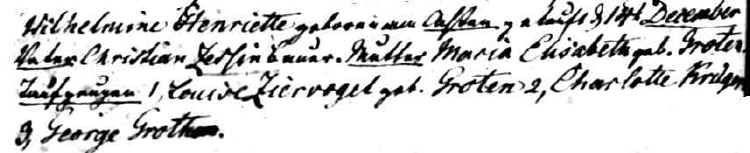 Wilhelmine Henriette geboren am getauft d 14t December
Vater Christian Zessin bauer. Mutter Maria Elisabeth geb. Groten
Taufzeugen 1, Louise Ziervogel geb. Groten 2, Charlotte Krüger
3, George Grothen.